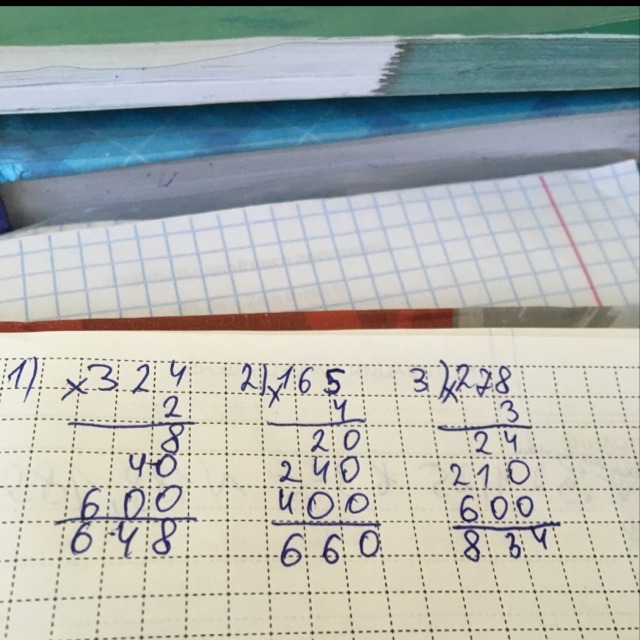 1) ×324 2) ×165 3) ×278
2 4 3
8 20 24
40 240 210
600 400 600
648 660 834